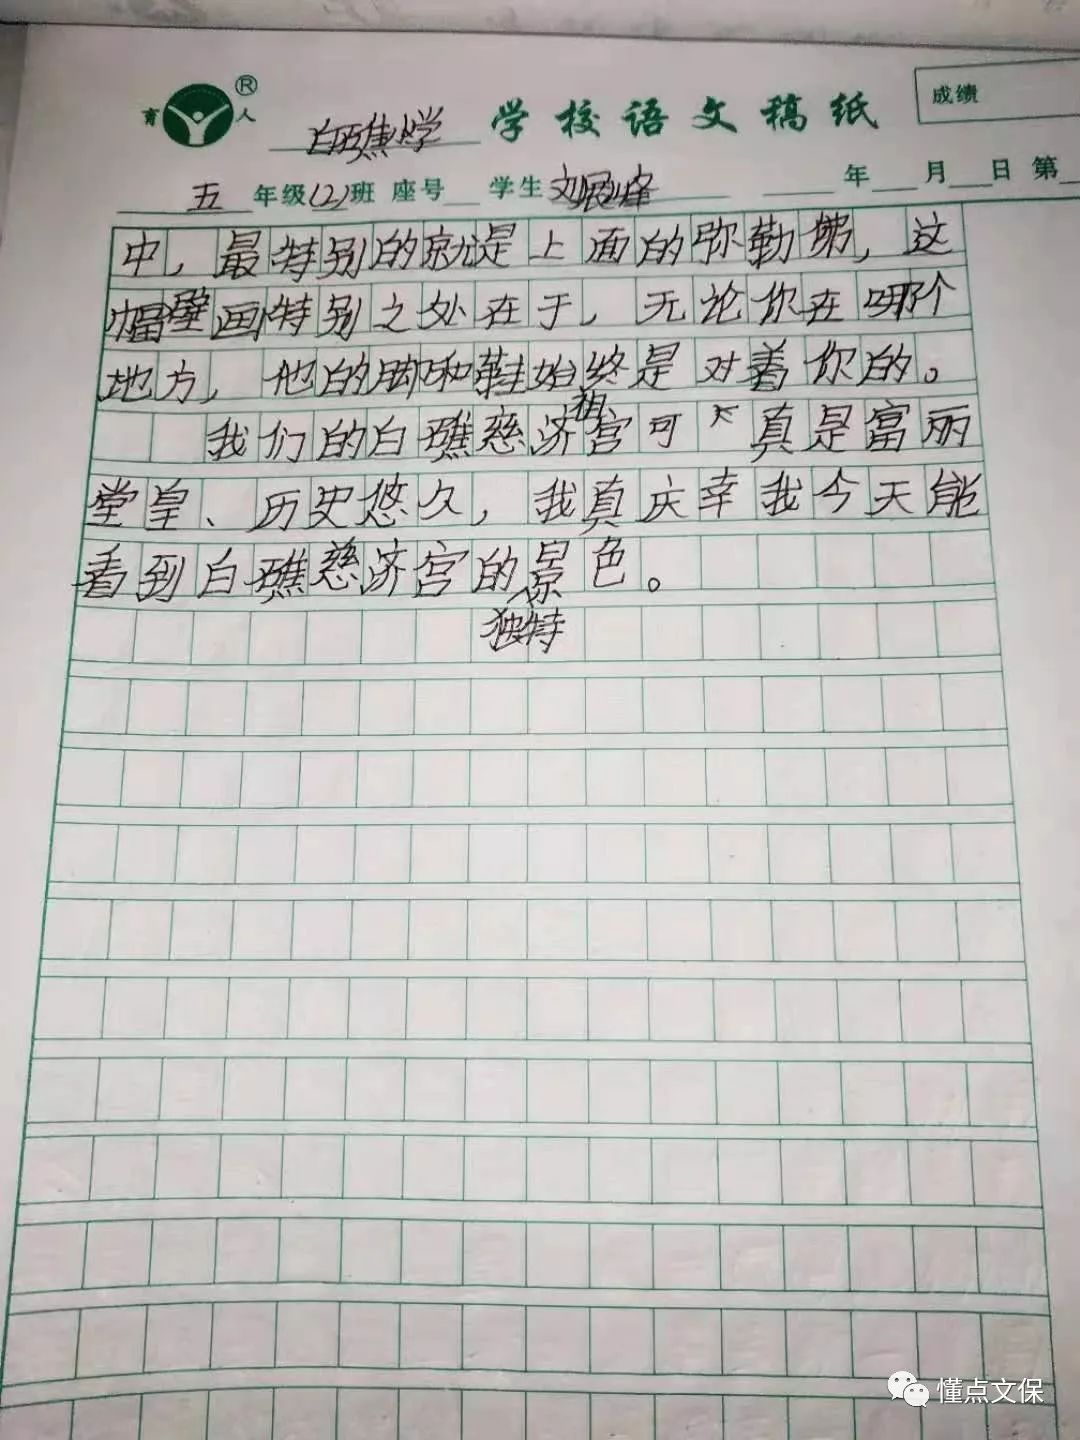 育 ® 人
白礁小学 学校语文稿纸 成绩
五 年级(2)班 座号 学生 年 月 日 第
中，最特别的就是上面的弥勒佛，这
幅壁画特别之处在于，无论你在哪个
地方，他的脚和鞋始终是对着你的。
祖
我们的白礁慈济宫可 真是富丽
堂皇、历史悠久，我真庆幸我今天能
看到白礁慈济宫的景色。
独特
懂点文保